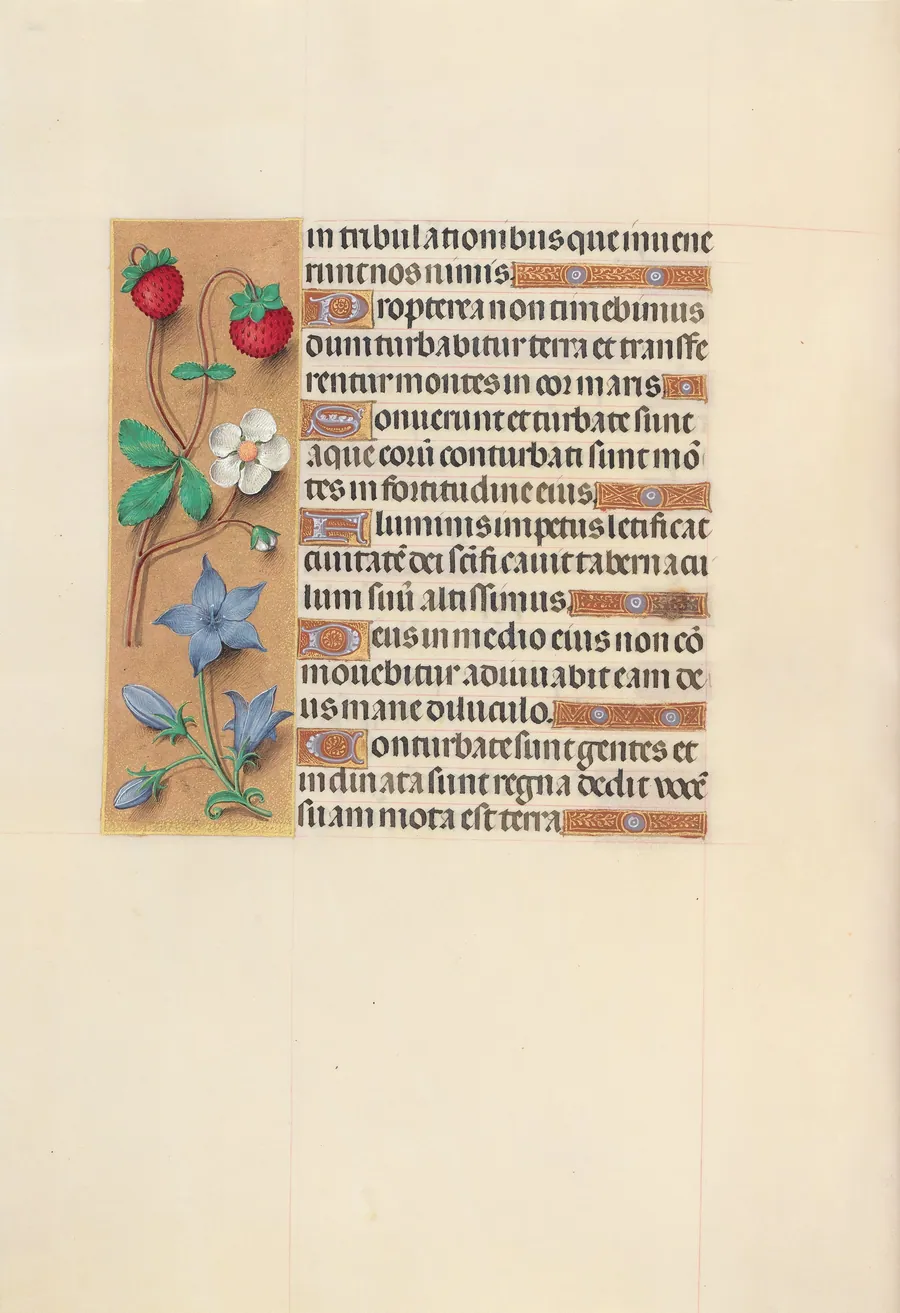 in tribulationibus que inuene
runt nos nimis.
Propterea non timebimus
dum turbabitur terra et transfe
rentur montes in cor maris.
Sonuerunt et turbate sunt
aque eorū conturbati sunt mō
tes in fortitudine eius.
Fluminis impetus letificat
ciuitatē dei scīficauit tabernacu
lum suū altissimus.
Deus in medio eius non cō
mouebitur adiuuabit eam de
us mane diluculo.
Conturbate sunt gentes et
inclinata sunt regna dedit vocē
suam mota est terra